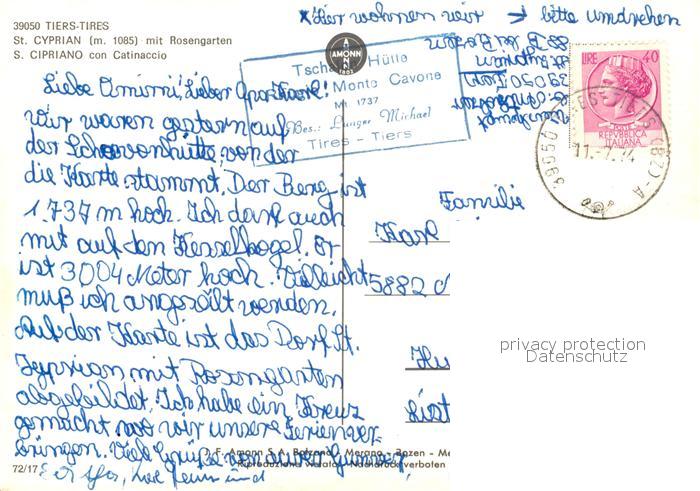 *Hier wohnen wir → bitte umdrehen
39050 TIERS-TIRES
St. CYPRIAN (m. 1085) mit Rosengarten
S. CIPRIANO con Catinaccio
AMONN
Tscha Hütte
Monte Cavone
M. 1737
Bes.: Michael
Tires - Tiers
St. Zyprian
39050 Tiers
bei Bozen
LIRE 40
REPVBBLICA
ITALIANA
39050 TIRES
11.-7.74
Liebe Omimi, Lieber Karl!
wir waren gestern auf
der von der
die Karte stammt. Der Berg ist
1.737 m hoch. Ich darf auch
mit auf den Kesselkogel. Er
ist 3004 Meter hoch. Vielleicht
muß ich angeseilt werden.
Auf der Karte ist das Dorf St.
Zyprian mit Rosengarten
abgebildet. Ich habe ein Kreuz
gemacht wo wir unsere Ferien ver-
bringen. Viele Grüße von
Familie
Karl
5882
J. F. Amonn S. A. Bolzano - Merano - Bozen - Me
Riproduzione vietata - Nachdruck verboten
72/17
privacy protection
Datenschutz